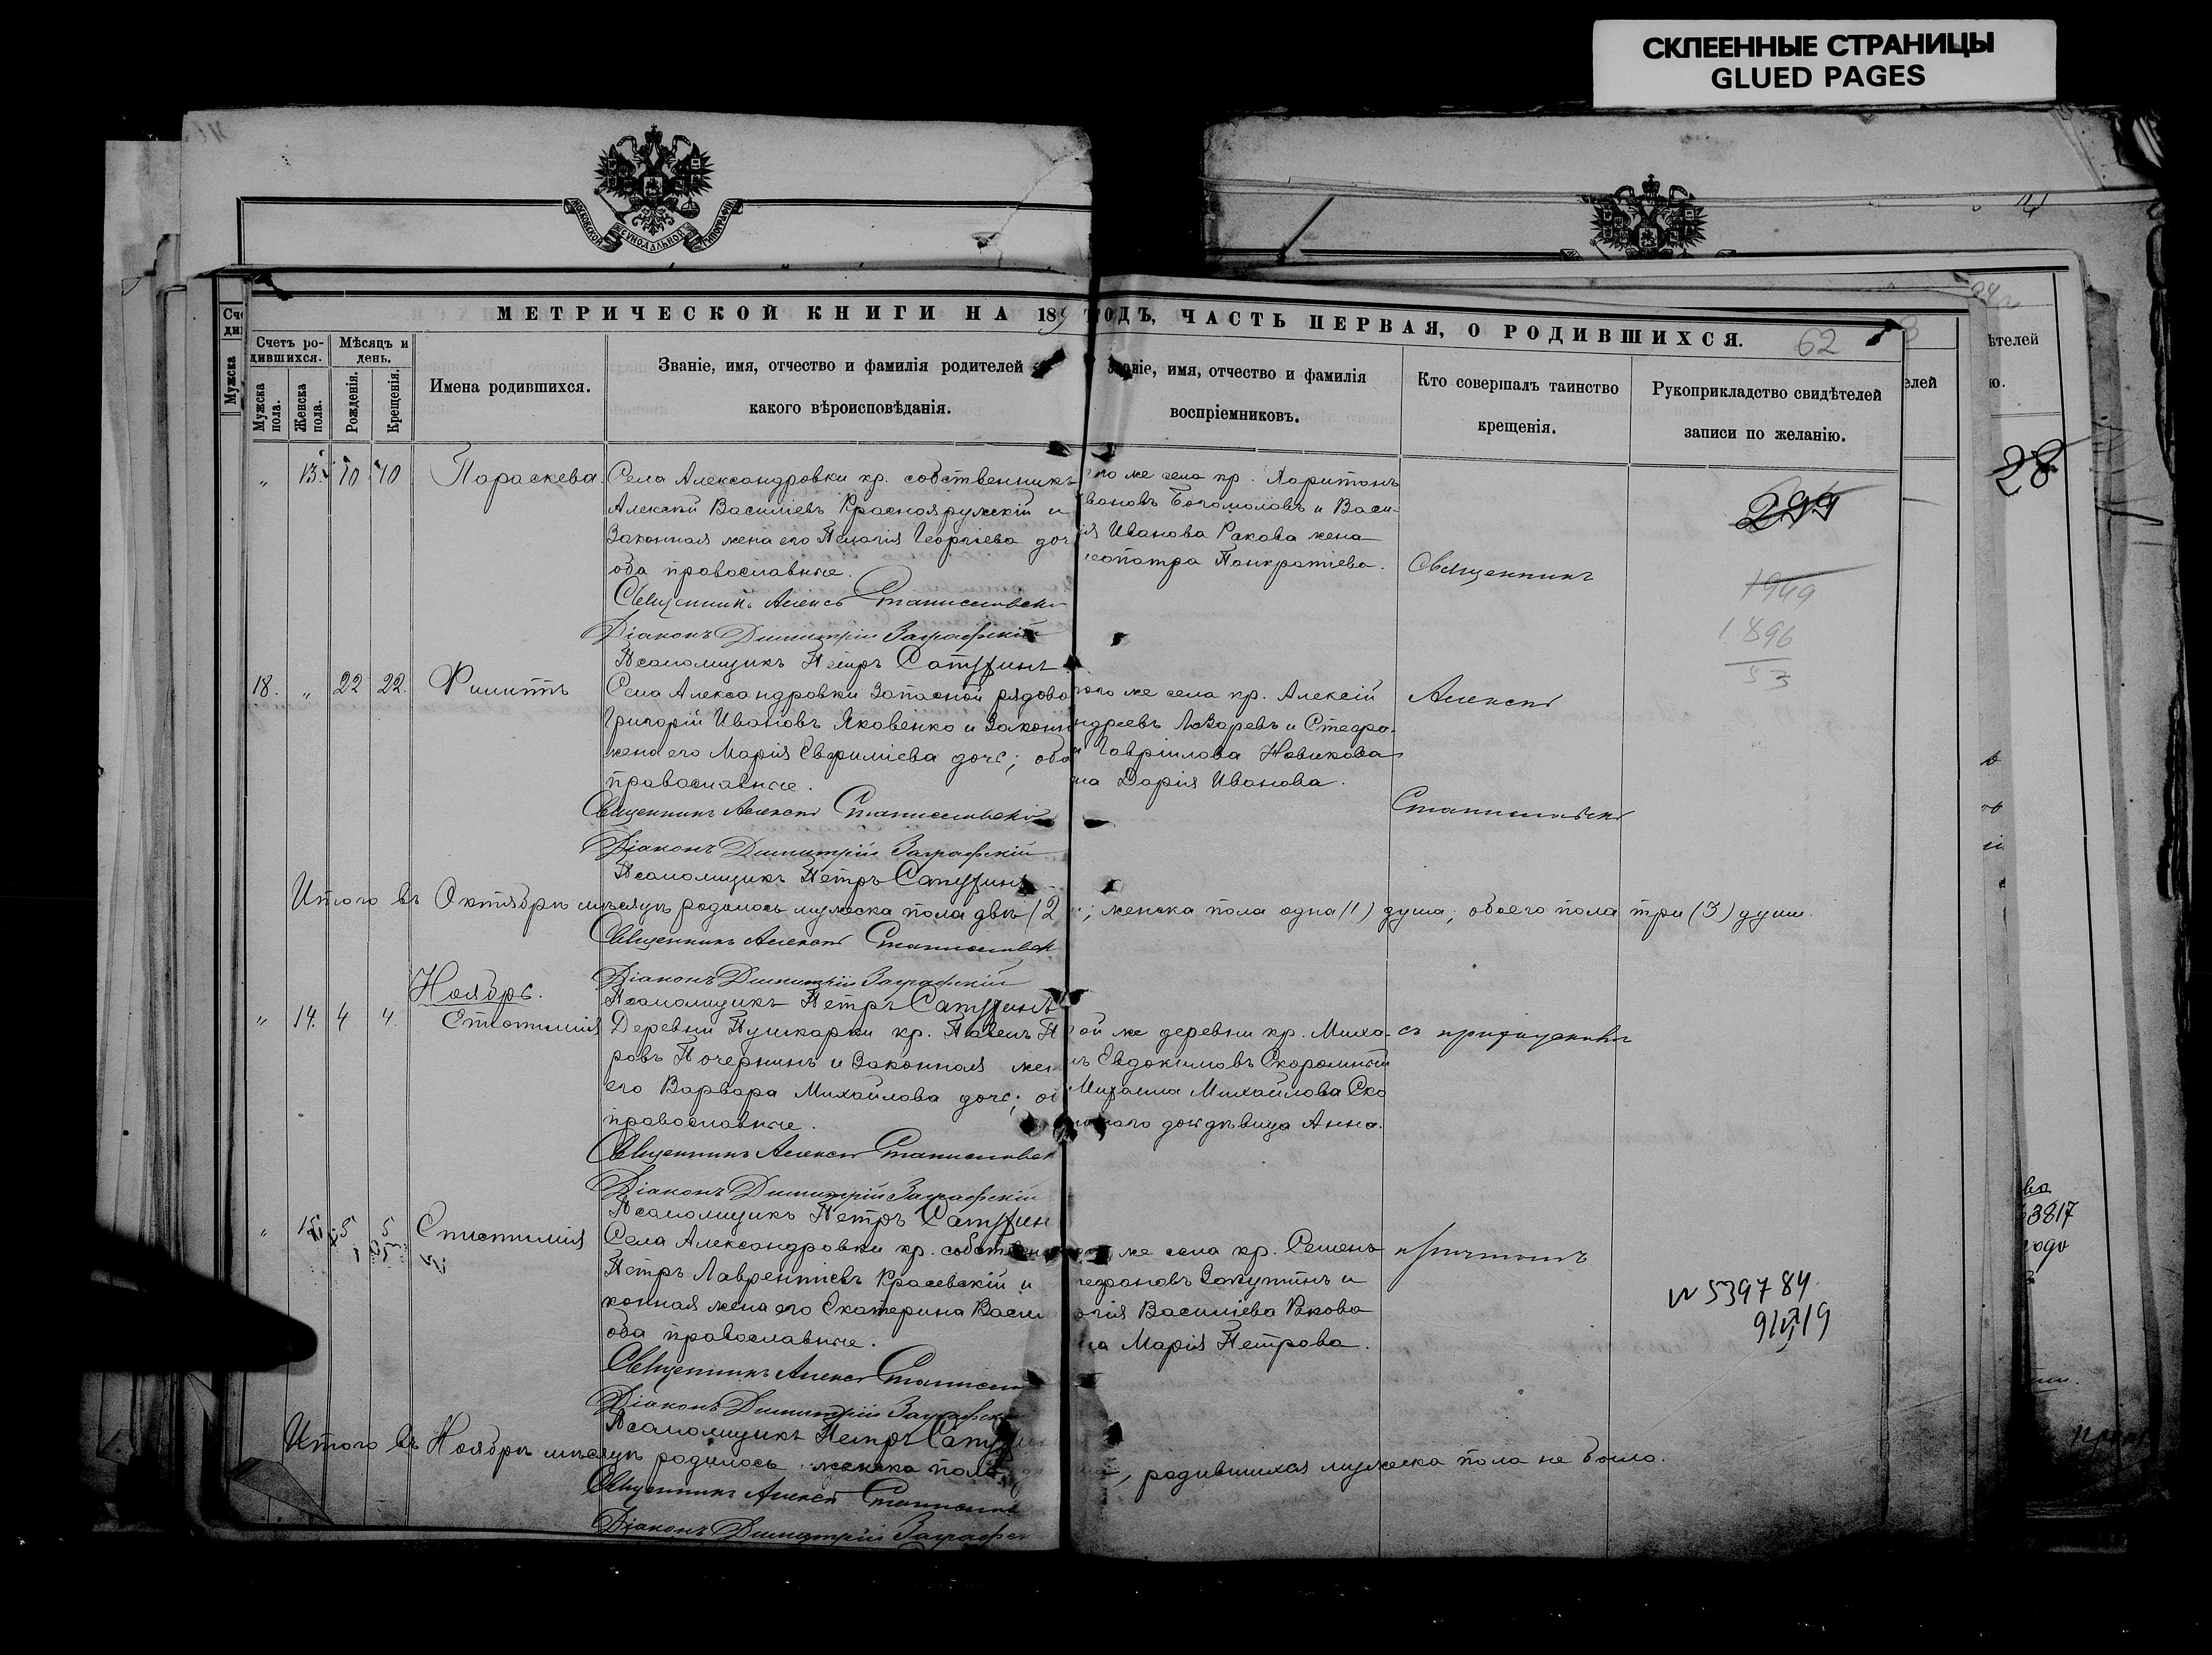 СКЛЕЕННЫЕ СТРАНИЦЫ
GLUED PAGES
МОСКОВСКОЙ СѴНОДАЛЬНОЙ
МЕТРИЧЕСКОЙ КНИГИ НА 189 ГОДЪ, ЧАСТЬ ПЕРВАЯ, О РОДИВШИХСЯ.
62
Счетъ ро-
дившихся.
Мѣсяцъ и
день.
Мужска
пола.
Женска
пола.
Рожденія.
Крещенія.
Имена родившихся.
Званіе, имя, отчество и фамилія родителей
какого вѣроисповѣданія.
имя, отчество и фамилія
воспріемниковъ.
Кто совершалъ таинство
крещенія.
Рукоприкладство свидѣтелей
записи по желанію.
28
" 13. 10 10 Параскева
Села Александровки кр. собственникъ
Алексѣй Василіевъ Краснояружскій и
Законная жена его Пелагія Георгіева
оба православные.
Священникъ Алексѣй Станиславскій
Діаконъ Димитрій Заграфскій
Псаломщикъ Петръ Сапухинъ
же села кр. Харитонъ
Ивановъ Богомоловъ и Васи-
Иванова Ракова жена
Панкратіева.
Священникъ
299
1949
1896
53
18. " 22 22. Филиппъ
Села Александровки Запасной рядово
Григорій Ивановъ Яковенко и Законн
жена его Марія Евфиміева дочь; оба
православные.
Священникъ Алексѣй Станиславскій
Діаконъ Димитрій Заграфскій
Псаломщикъ Петръ Сапухинъ
же села кр. Алексій
Лазаревъ и Стефа-
Гавріилова Новикова
Дарія Иванова.
Алексѣй
Станиславскій
Итого въ Октябрѣ мѣсяцѣ родилось мужеска пола двѣ (2 ; женска пола одна (1) душа; обоего пола три (3) души.
Священникъ Алексѣй Станиславск
Діаконъ Димитрій Заграфскій
Псаломщикъ Петръ Сапухинъ
Ноябрь.
" 14. 4 4.
Деревни Пушкарки кр. Павелъ П
ровъ Почернинъ и Законная жен
его Варвара Михайлова дочь;
православные.
Священникъ Алексѣй Станиславск
Діаконъ Димитрій Заграфскій
Псаломщикъ Петръ Сапухин
ой же деревни кр. Миха-
Евдокимовъ
Михаила Михайлова Ско
дочь дѣвица Анна.
съ
" 15. 5 5
Села Александровки кр. собствен
Петръ Лаврентіевъ Красевскій и
конная жена его Екатерина Васи
оба православные.
Священникъ Алексѣй Станисла
Діаконъ Димитрій Заграфск
Псаломщикъ Петръ Сапух
же села кр. Семенъ
Закутинъ и
Василіева Ракова
Марія Петрова.
причтомъ
N 539784
Итого въ Ноябрѣ мѣсяцѣ родилось женска пола , родившихся мужеска пола не было.
Священникъ Алексѣй Станислав
Діаконъ Димитрій Заграфск